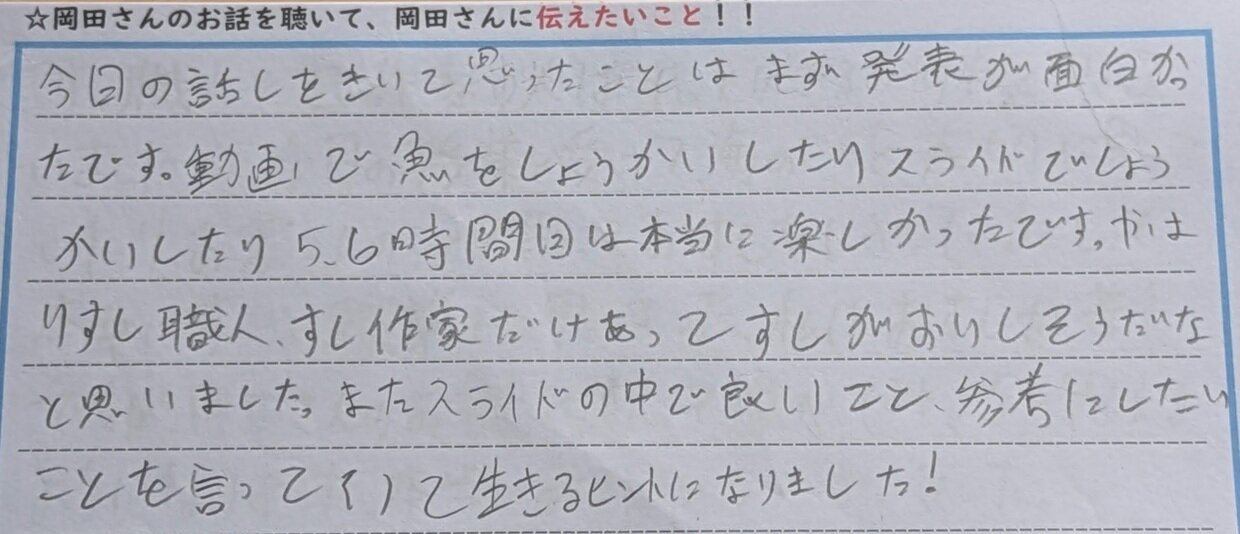 ☆岡田さんのお話を聴いて、岡田さんに伝えたいこと！！
今回の話しをきいて思ったことは まず 発表が面白かっ
たです。動画で魚をしょうかいしたりスライドでしょう
かいしたり5、6時間目は本当に楽しかったです。やは
りすし職人、すし作家だけあってすしがおいしそうだな
と思いました。またスライドの中で良いこと、参考にしたい
ことを言っていて生きるヒントになりました！